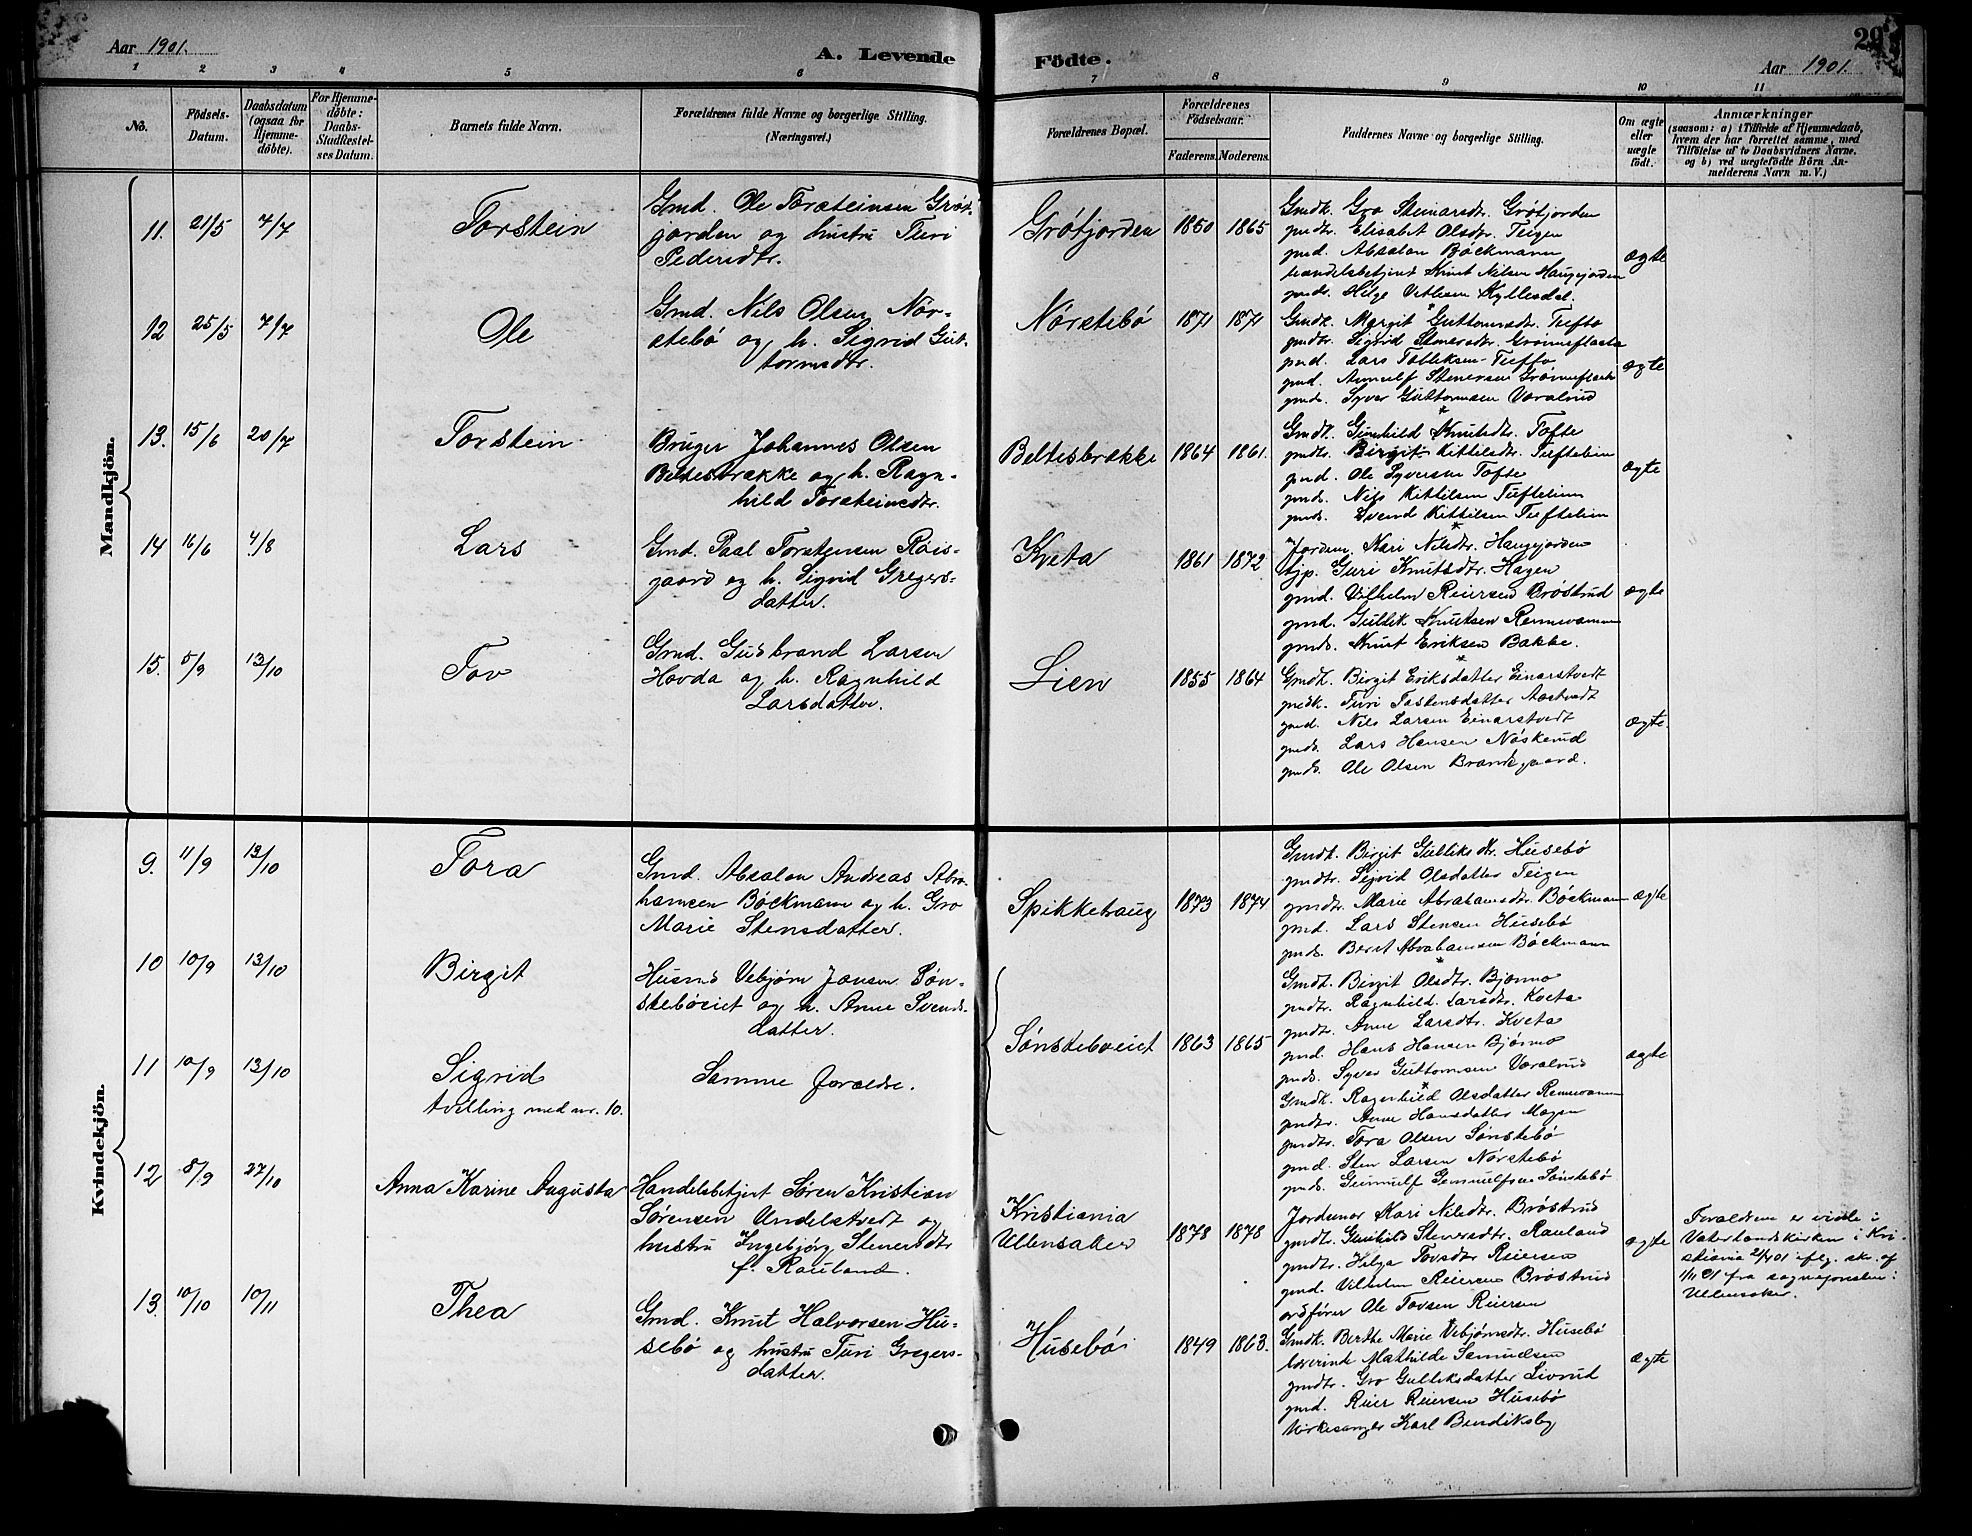 Aar 1901.
A. Levende Födte.
29
Aar 1901.
1 2 3 4 5 6 7 8 9 10 11
No.
Födsels-
Datum.
Daabsdatum
(ogsaa for
Hjemme-
döbte).
For Hjemme-
döbte:
Daabs-
Stadfestel-
ses Datum.
Barnets fulde Navn.
Forældrenes fulde Navne og borgerlige Stilling.
(Næringsvei.)
Forældrenes Bopæl.
Forældrenes
Födselsaar.
Faderens. Moderens.
Faddernes Navne og borgerlige Stilling.
Om ægte
eller
uægte
födt.
Anmærkninger
(saasom: a) i Tilfælde af Hjemmedaab,
hvem der har forrettet samme, med
Tilföielse af to Daabsvidners Navne,
og b) ved uegtefödte Börn An-
melderens Navn m. V.)
Mandkjön.
11. 21/5 7/7 Torstein
Gmd. Ole Torsteinsen Gröt-
jorden og hustru Turi
Pedersdtr.
Grötjorden 1850 1865
Gmdk. Gro Steinarsdtr. Grötjorden
gmdtr. Elisabet Olsdtr. Teigen
gmd. Absalon Böckmann
handelsbetjent Knut Nilsen Haugejorden
gmds. Helge Vetlesen Kyllesdal.
ægte
12 25/5 7/7 Ole
Gmd. Nils Olsen Nör-
stebö og h. Sigrid Gut-
tormsdtr.
Nörstebö 1871 1871
Gmdk. Margit Guttormsdtr. Tufto
gmdtr. Sigrid Stenersdtr. Grönneflaata
gmd. Lars Tolleksen Tufto
gmd. Arnulf Stenersen Grönneflaata
gmds. Syver Guttormsen Varalrud
ægte
13. 15/6 20/7 Torstein
Bruger Johannes Olsen
Beltesbrække og h. Ragn-
hild Torsteinsdtr.
Beltesbrække 1864 1861.
Gmdk. Gunhild Knutsdtr. Tofte
gmdtr. Birgit Kittilsdtr. Tuftelien
gmd. Ole Syversen Tofte
gmds. Nils Kittilsen Tuftelien
gmds. Svend Kittilsen Tuftelien
ægte
14 16/6 4/8 Lars
Gmd. Paal Torstensen Rois-
gaard og h. Sigrid Gregers-
datter.
Kveta 1861 1872
Jordem. Kari Nilsdtr. Haugejorden
tjp. Guri Knutsdtr. Hagen
gmd. Vilhelm Reiersen Bröstrud
gmd. Gullik Knutsen Rennevamm
gmds. Knut Eriksen Bakke.
ægte
15. 5/9 13/10 Tov
Gmd. Gudbrand Larsen
Hovda og h. Ragnhild
Larsdatter.
Lien 1855 1864
Gmdk. Birgit Eriksdatter Einarstvedt
gmdk. Turi Tostensdatter Aastvedt
gmd. Nils Larsen Einarstvedt
gmds. Lars Hansen Nöskerud
gmds. Ole Olsen Brandtgaard.
ægte
Kvindekjön.
9. 11/9 13/10 Tora
Gmd. Absalon Andreas Abra-
hamsen Böckmann og h. Gro
Marie Stensdatter.
Spikkehaug 1873 1874
Gmdk. Birgit Gulliksdtr. Husebö
gmdtr. Sigrid Olsdatter Teigen
gmdtr. Marie Abrahamsdtr. Böckmann
gmd. Lars Stensen Husebö
gmds. Bernt Abrahamsen Böckmann
ægte
10 10/9 13/10 Birgit
Husmd Vebjörn Jonsen Sön-
steböeiet og h. Anne Svends-
datter.
Sönsteböeiet 1863 1865
Gmdk. Birgit Olsdtr. Bjönno
gmdtr. Ragnhild Larsdtr. Kveta
gmdtr. Anne Larsdtr. Kveta
gmd. Hans Hansen Bjönno
gmds. Syver Guttormsen Varalrud
ægte
11 10/9 13/10 Sigrid
tvilling med nr. 10.
Samme forældre.
Gmdk. Ragnhild Olsdatter Rennevamm
gmdtr. Anne Hansdatter Mogen
gmdtr. Tora Olsen Sönstebö
gmd. Sten Larsen Nörstebö
gmds. Gunnulf Gunnulfsen Sönstebö
12 8/9 27/10 Anna Karine Augusta
Handelsbetjent Sören Kristian
Sörensen Undelstvedt og
hustru Ingebjörg Stenersdtr
f. Rauland.
Kristiania
Ullensaker 1878 1878
Jordemor Kari Nilsdtr. Bröstrud
gmdtr. Gunhild Stenersdtr. Rauland
gmdtr. Helga Tovsdtr Reiersen
gmd. Vilhelm Reiersen Bröstrud
ordförer Ole Tovsen Reiersen
ægte
Forældrene er viede i
Vaterlandskirken i Kri-
stiania 2/4 01 iflg. skr. af
1/11 01 fra sognepresten i
Ullensaker.
13. 10/10 10/11 Thea
Gmd. Knut Halvorsen Hu-
sebö og hustru Turi Gregers-
datter.
Husebö 1849 1863.
Gmdk. Berthe Marie Vebjörnsdtr. Husebö
lærerinde Mathilde Samuelsen
gmdtr. Gro Gulliksdatter Livrud
gmd. Reier Reiersen Husebö
kirkesanger Karl Bendiksby
ægte